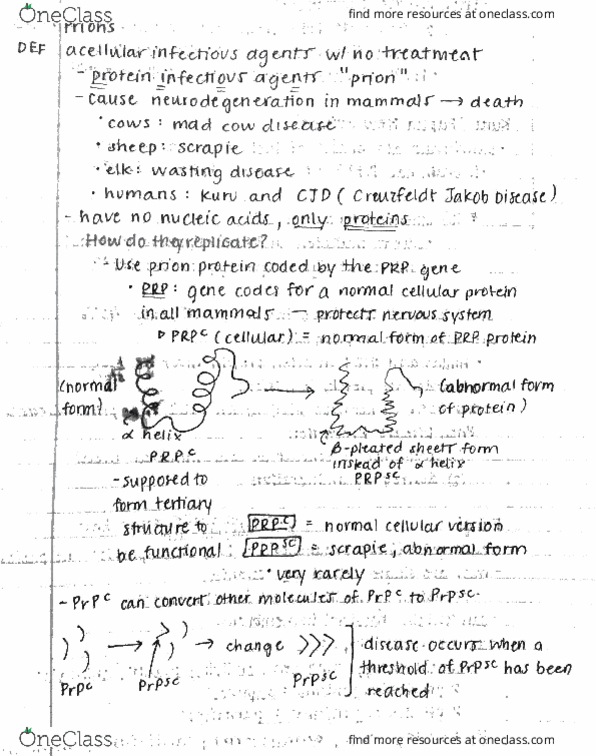 OneClass
find more resources at oneclass.com
Prions
DEF
acellular infectious agents w/ no treatment
- protein infectious agents "prion"
- cause neurodegeneration in mammals → death
• cows: mad cow disease
• sheep: scrapie
• elk: wasting disease
• humans: kuru and CJD (Creuzfeldt Jakob Disease)
- have no nucleic acids, only proteins
How do they replicate?
- Use prion protein coded by the PRP gene
• PRP: gene codes for a normal cellular protein
in all mammals — protects nervous system
▷ PRPᶜ (cellular) = normal form of PRP protein
(normal
form)
→
(abnormal form
of protein)
α helix
PRPᶜ
β-pleated sheet form
instead of α helix
PRPˢᶜ
- supposed to
form tertiary
structure to
be functional
PRPᶜ = normal cellular version
PRPˢᶜ = scrapie, abnormal form
• very rarely
- PrPᶜ can convert other molecules of PrPᶜ to PrPsc.
→ → change
PrPc
PrPsc
PrPsc
disease occurs when a
threshold of PrPsc has been
reached
OneClass
find more resources at oneclass.com